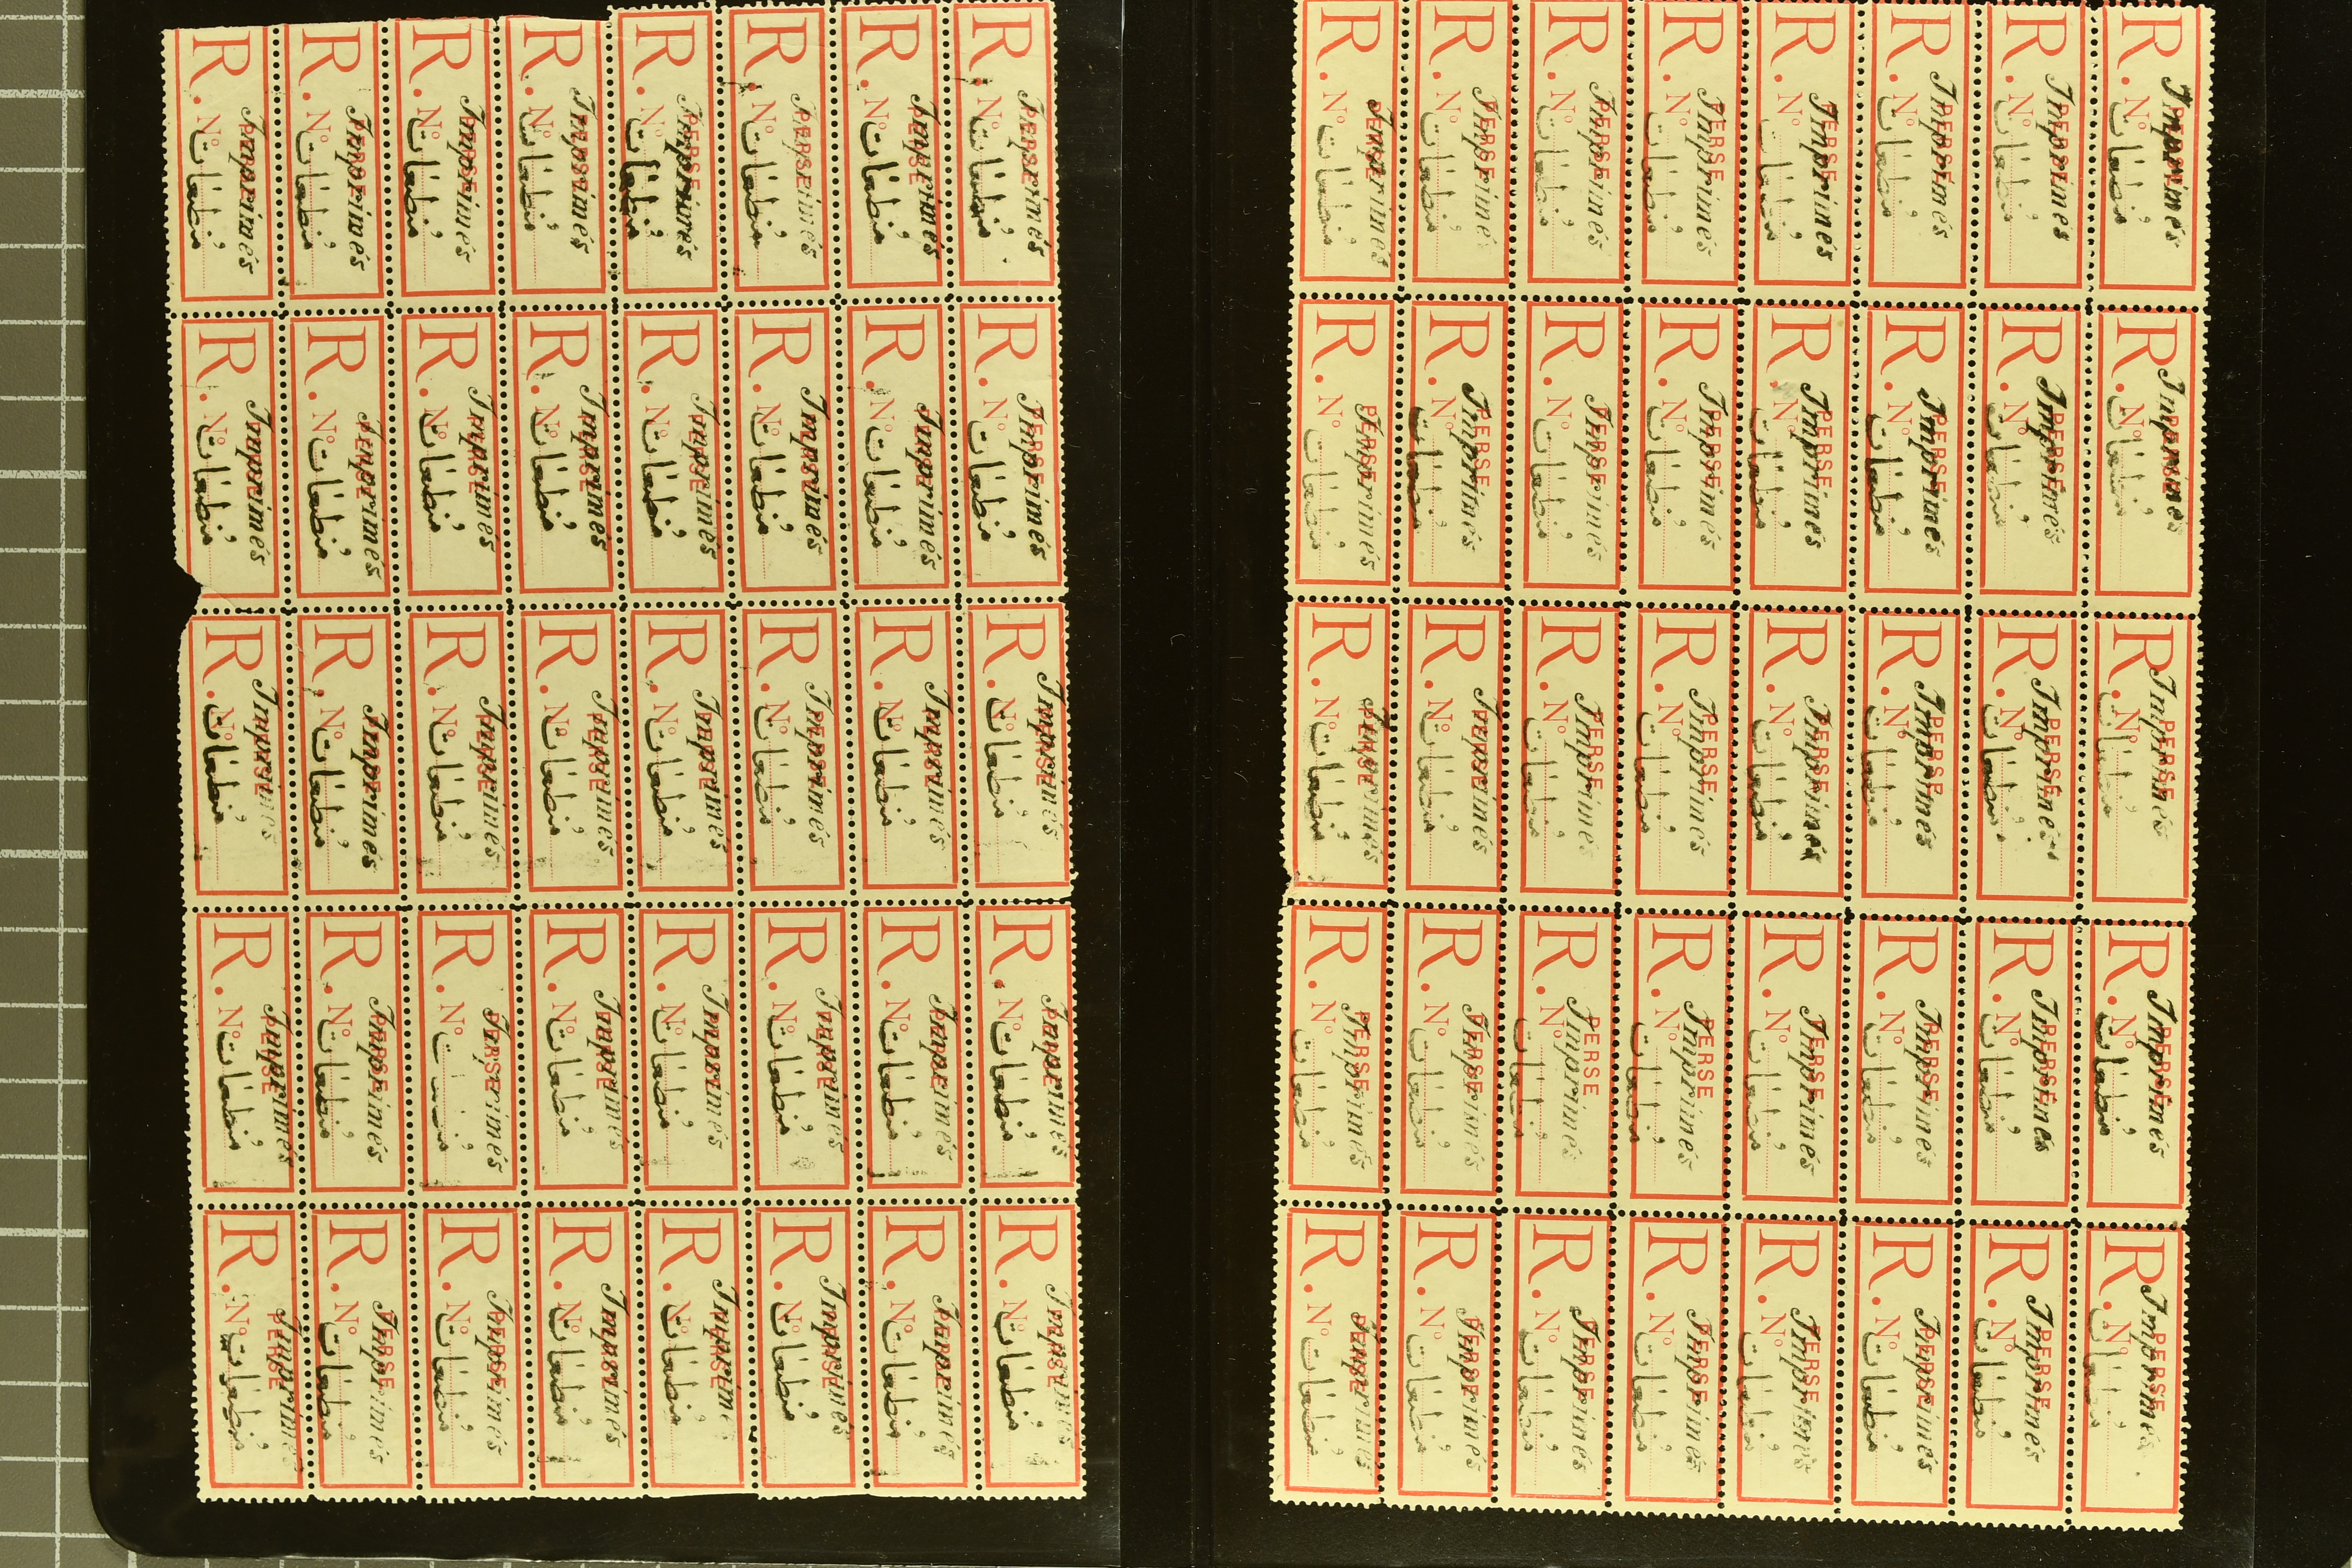 R. PERSE
Imprimés
Nº
مطبوعات